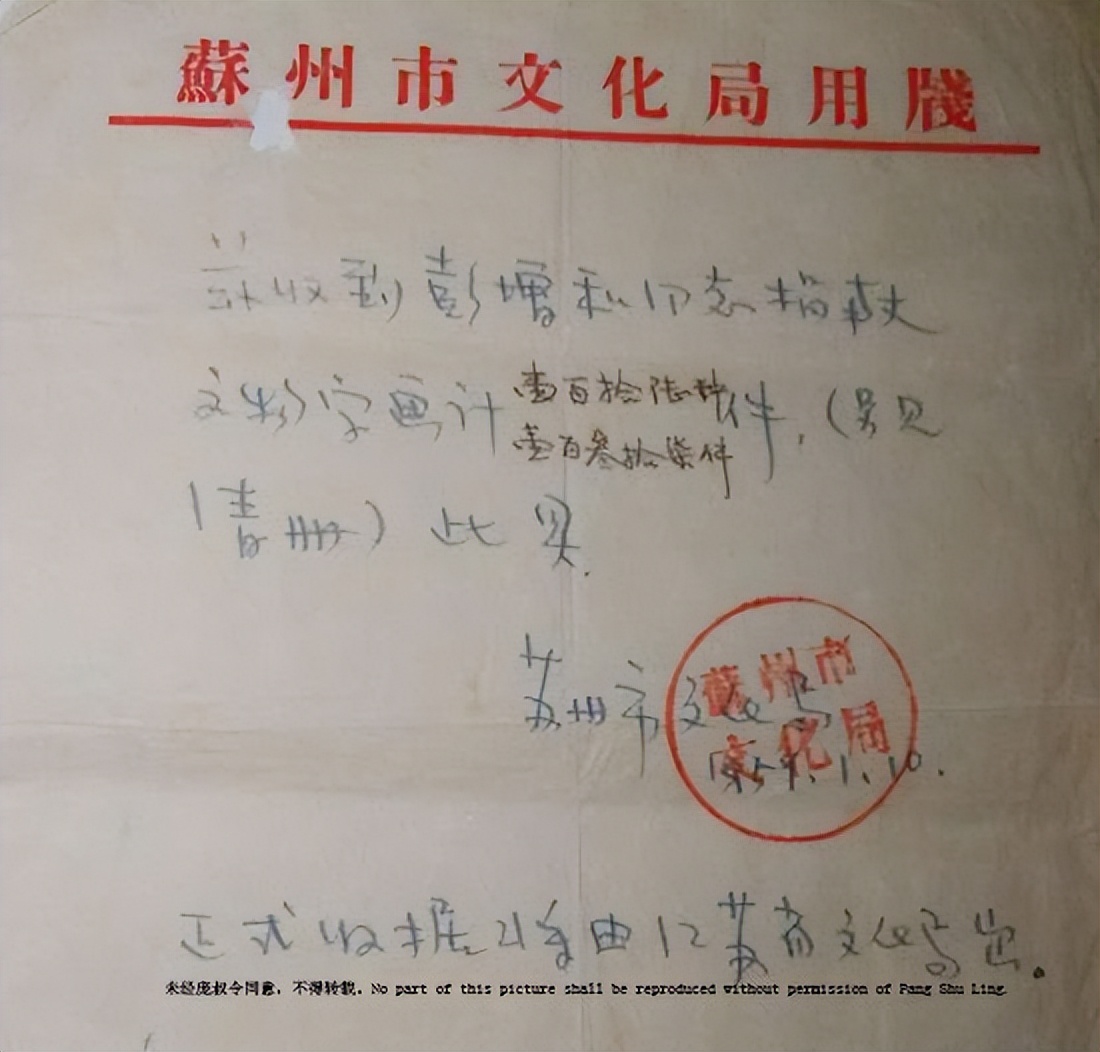 蘇州市文化局用牋
兹收到彭增和同志捐献
文物字画计壹百拾陆种件,(另见
壹百叁拾柒件
清册)此具.
苏州市文化局
蘇州市
文化局
1959.1.10.
正式收据将由江苏省文化局出。
未经庞叔令同意,不得转载。No part of this picture shall be reproduced without permission of Pang Shu Ling.